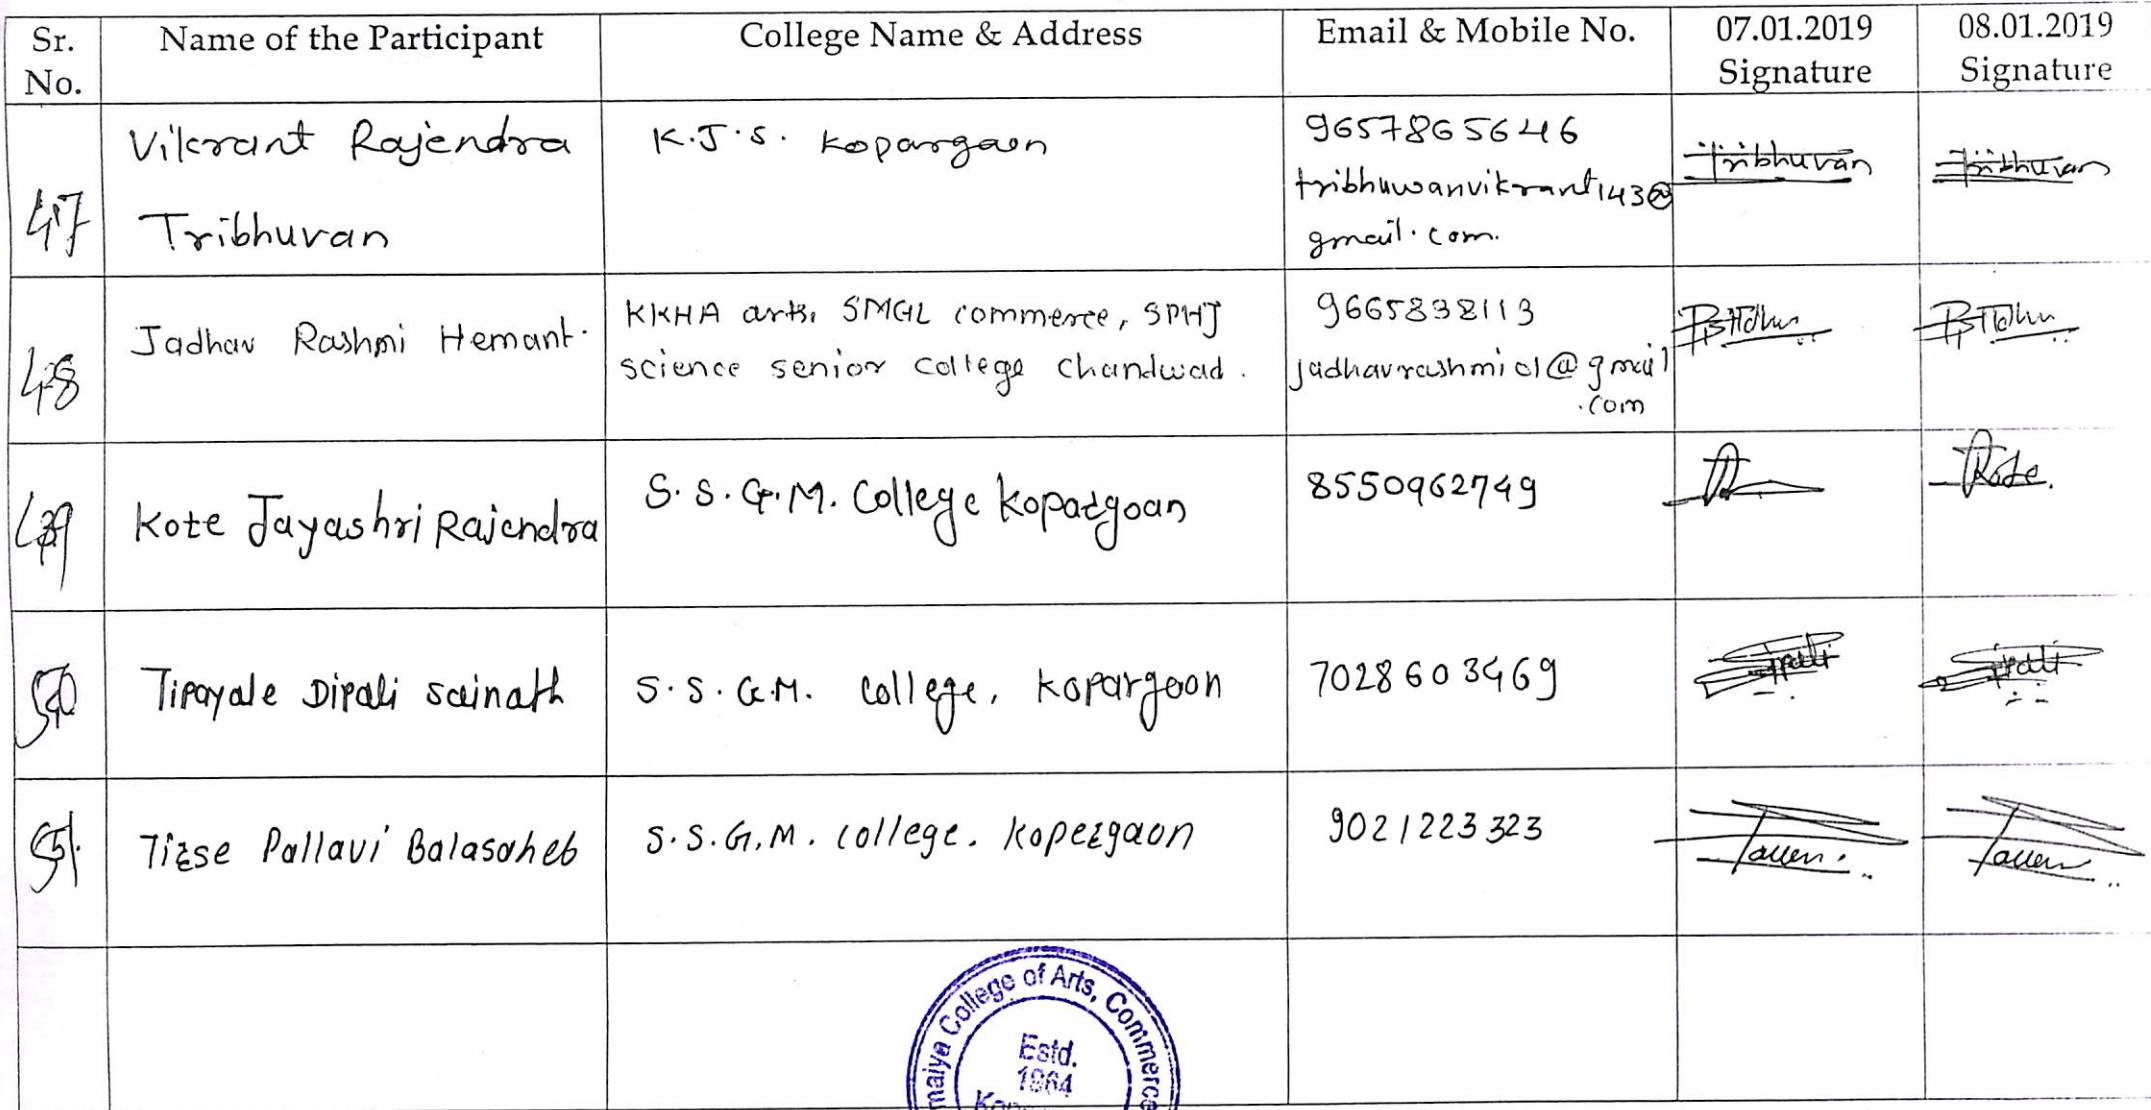 Sr. No.
Name of the Participant
College Name & Address
Email & Mobile No.
07.01.2019 Signature
08.01.2019 Signature
47
Vikrant Rajendra
Tribhuvan
K.J.S. Kopargaon
9657865646
tribhuwanvikrant143@
gmail.com.
Tribhuvan
Tribhuvan
48
Jadhav Rashmi Hemant.
KKHA arts, SMGL commerce, SPHJ
science senior college chandwad.
9665838113
jadhavrashmi01@gmail
.com
49
Kote Jayashri Rajendra
S.S.G.M. College Kopargoan
8550962749
Kote.
50
Tipayale Dipali sainath
S.S.G.M. college, Kopargaon
7028603469
51
Tirse Pallavi Balasaheb
S.S.G.M. college. Kopergaon
9021223323
maiya College of Arts, Commerce
Estd.
1964